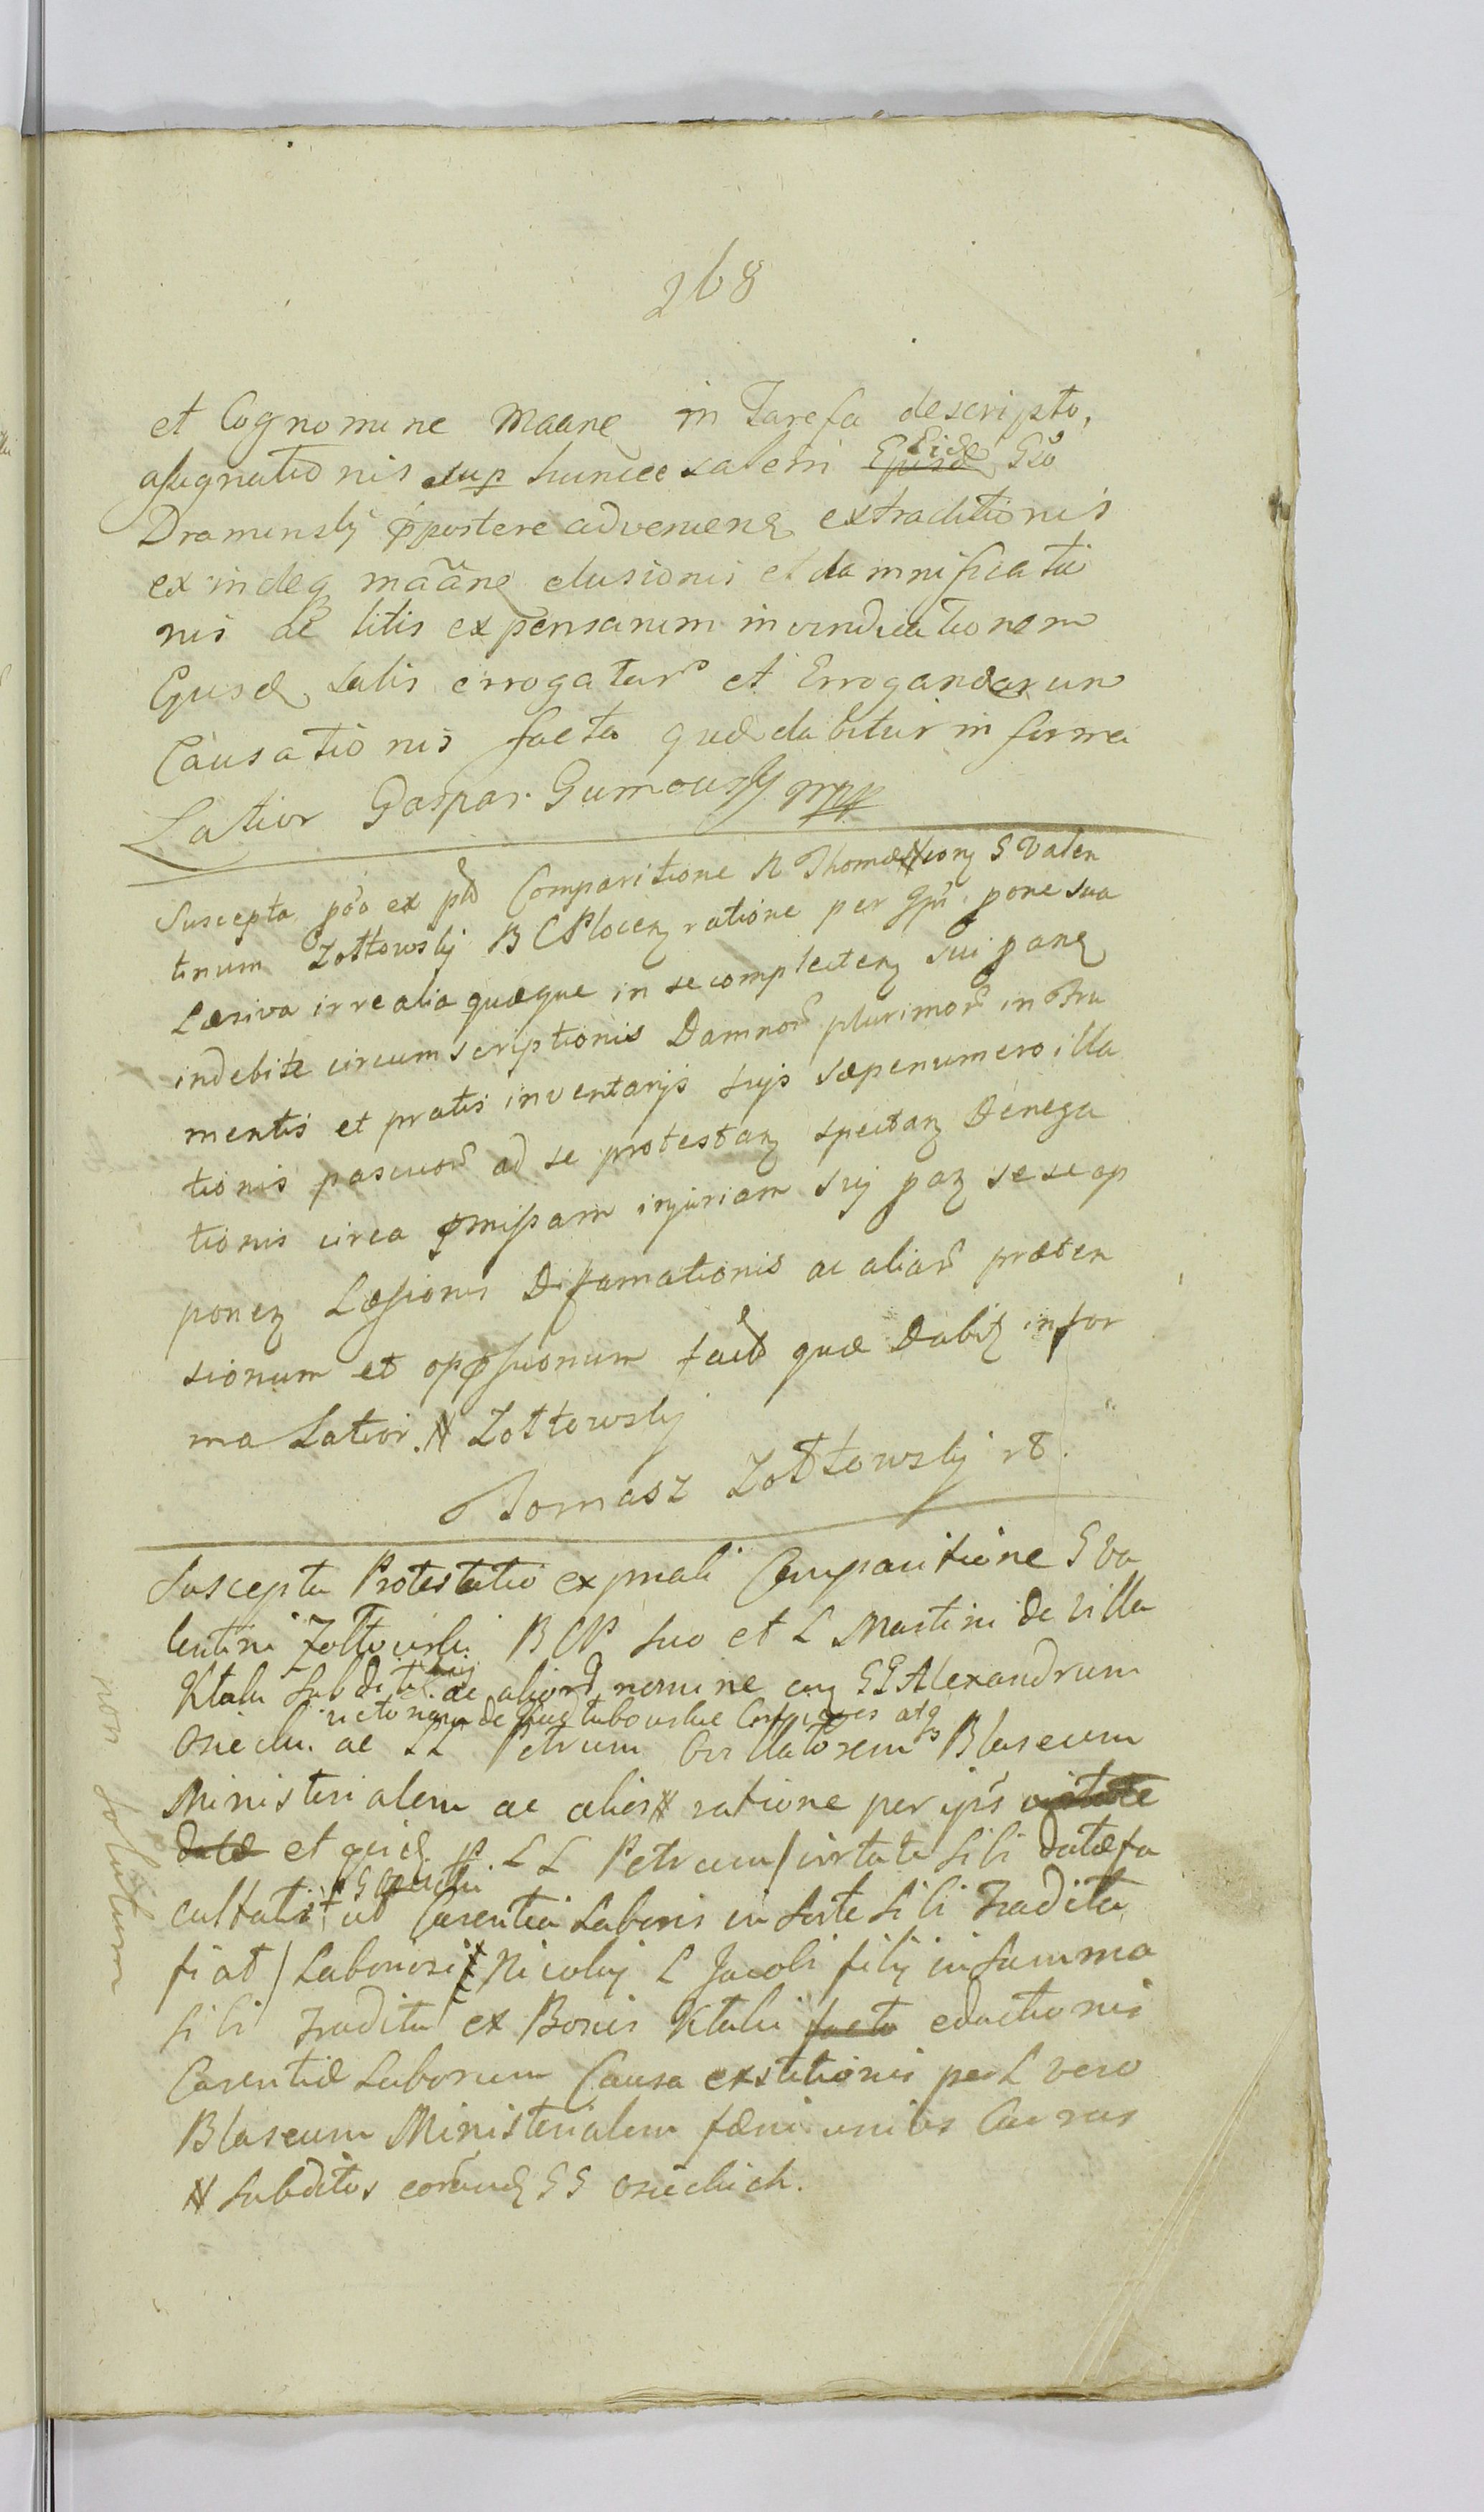 268
et Cognomine Maane in Tarefa descripto,
assignationis sup huncce salem Ejusd Eid Gso
Draminsky opportere advenienz extraditionis
ex indeq maane elusionis et damnificatio
nis ac litis expensarum in vindicationem
Ejusd salis errogatar et Errogandarum
Causationis facta quae dabitur in forma
Latior Gaspar Gumowsky mpp
Suscepta poo ex pld Comparitione N Thomae N conz S Valen
tinum Zołtowskij B C Plocenz ratione per Ipm pone sua
Laesiva irrealia quaeque in se complectenz sui panz
indebite circumscriptionis Damnor plurimor in Fru
mentis et pratis inventarijs suis saepenumero illa
tionis pascuor ad se protestanz spectanz Denega
tionis circa pmissam injuriam sui panz sese op
ponenz Laesionis Diffamationis ac aliar praeten
sionum et oppssionum facta quae Dabitz in for
ma Latior. N Zołtowskij
Tomasz Zołtowskij
Suscepta Protestatio ex pnali Comparitione G Va
lentini Zołtowski B C P suo et L Martini de villa
Ktalu subditi sui ac alior nomine conz GG Alexandrum
Victoriam de Conjuges atq
Osiecki ac LL Petrum Blaseum
Ministerialem ac alios N ratione per ips virtute
datae et quid p. LL Petrum / virtute sibi datae fa
cultatis ut Carentia Laboris in sorte sibi Tradita
fiat / Laboriosi Nicolai L Jacobi filij in summa
sibi Tradita ex Bonis Ktalu facta eductionis
Carentiae Laborum Causa exstitionis per L vero
Blaseum Ministerialem faeni unius Currus
N Subditos eorund GG Osieckich.
non solutum